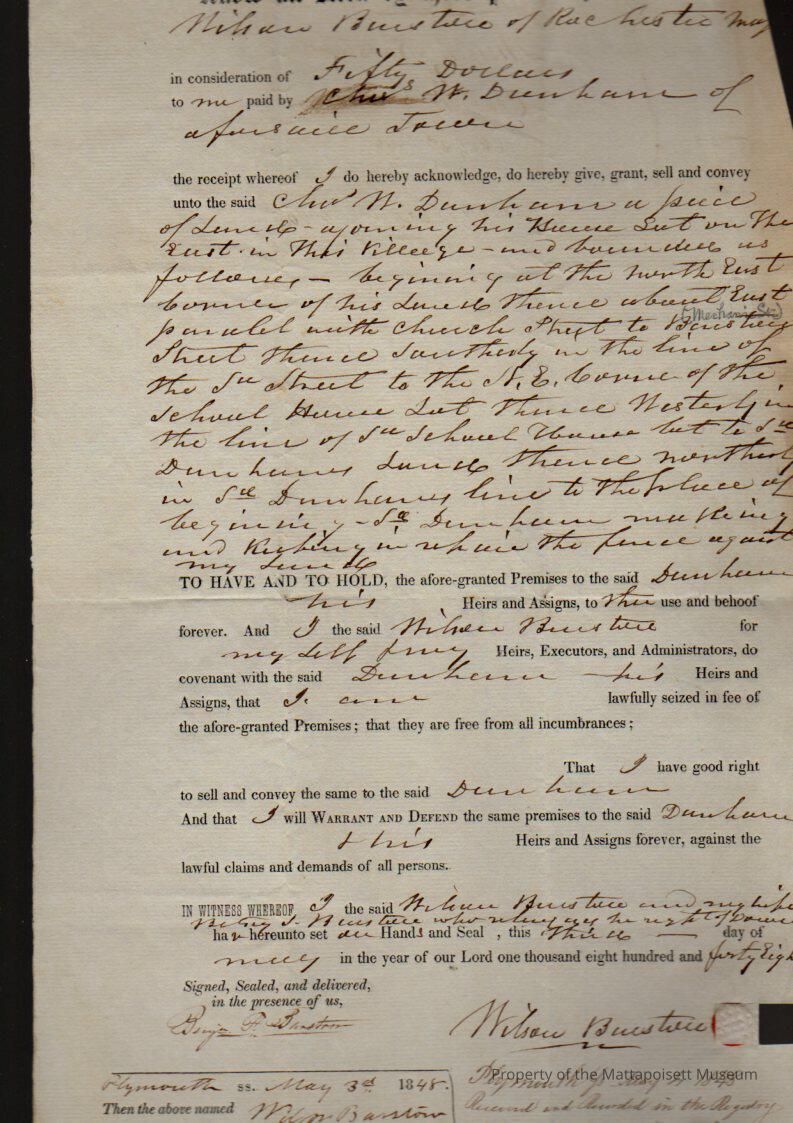 Wilson Barstow of Rochester
in consideration of Fifty Dollars
to me paid by Chas W. Dunham of
aforsaid Town
the receipt whereof I do hereby acknowledge, do hereby give, grant, sell and convey
unto the said Chas W. Dunham a peice
of Land - ajoining his House Lot on the
East in this Villege - and bounded as
follows - begining at the north East
Corner of his Land thence about East
paralel with Church Street to Barstow (Mechanic St.)
Street thence Southerly in the line of
the Sd Street to the N.E. Corner of the
School House Lot thence Westerly in
the line of Sd School House lot to Sd
Dunhams Land thence northerly
in Sd Dunhams line to the place of
begining - Sd Dunham making
and Keeping in repair the fence against
my Land
TO HAVE AND TO HOLD, the afore-granted Premises to the said Dunham
his Heirs and Assigns, to their use and behoof
forever. And I the said Wilson Barstow for
my Self & my Heirs, Executors, and Administrators, do
covenant with the said Dunham his Heirs and
Assigns, that I am lawfully seized in fee of
the afore-granted Premises; that they are free from all incumbrances;
That I have good right
to sell and convey the same to the said Dunham
And that I will WARRANT AND DEFEND the same premises to the said Dunham
& his Heirs and Assigns forever, against the
lawful claims and demands of all persons.
IN WITNESS WHEREOF, I the said Wilson Barstow and my wife
Barstow who relinquishes her right of Dower
have hereunto set our Hands and Seal, this third day of
May in the year of our Lord one thousand eight hundred and forty Eight
Signed, Sealed, and delivered,
in the presence of us,
Benj. F. Barstow
Wilson Barstow
Plymouth ss. May 3rd 1848.
Then the above named Wilson Barstow
Property of the Mattapoisett Museum
Plymouth ss
Received and Recorded in the Registry